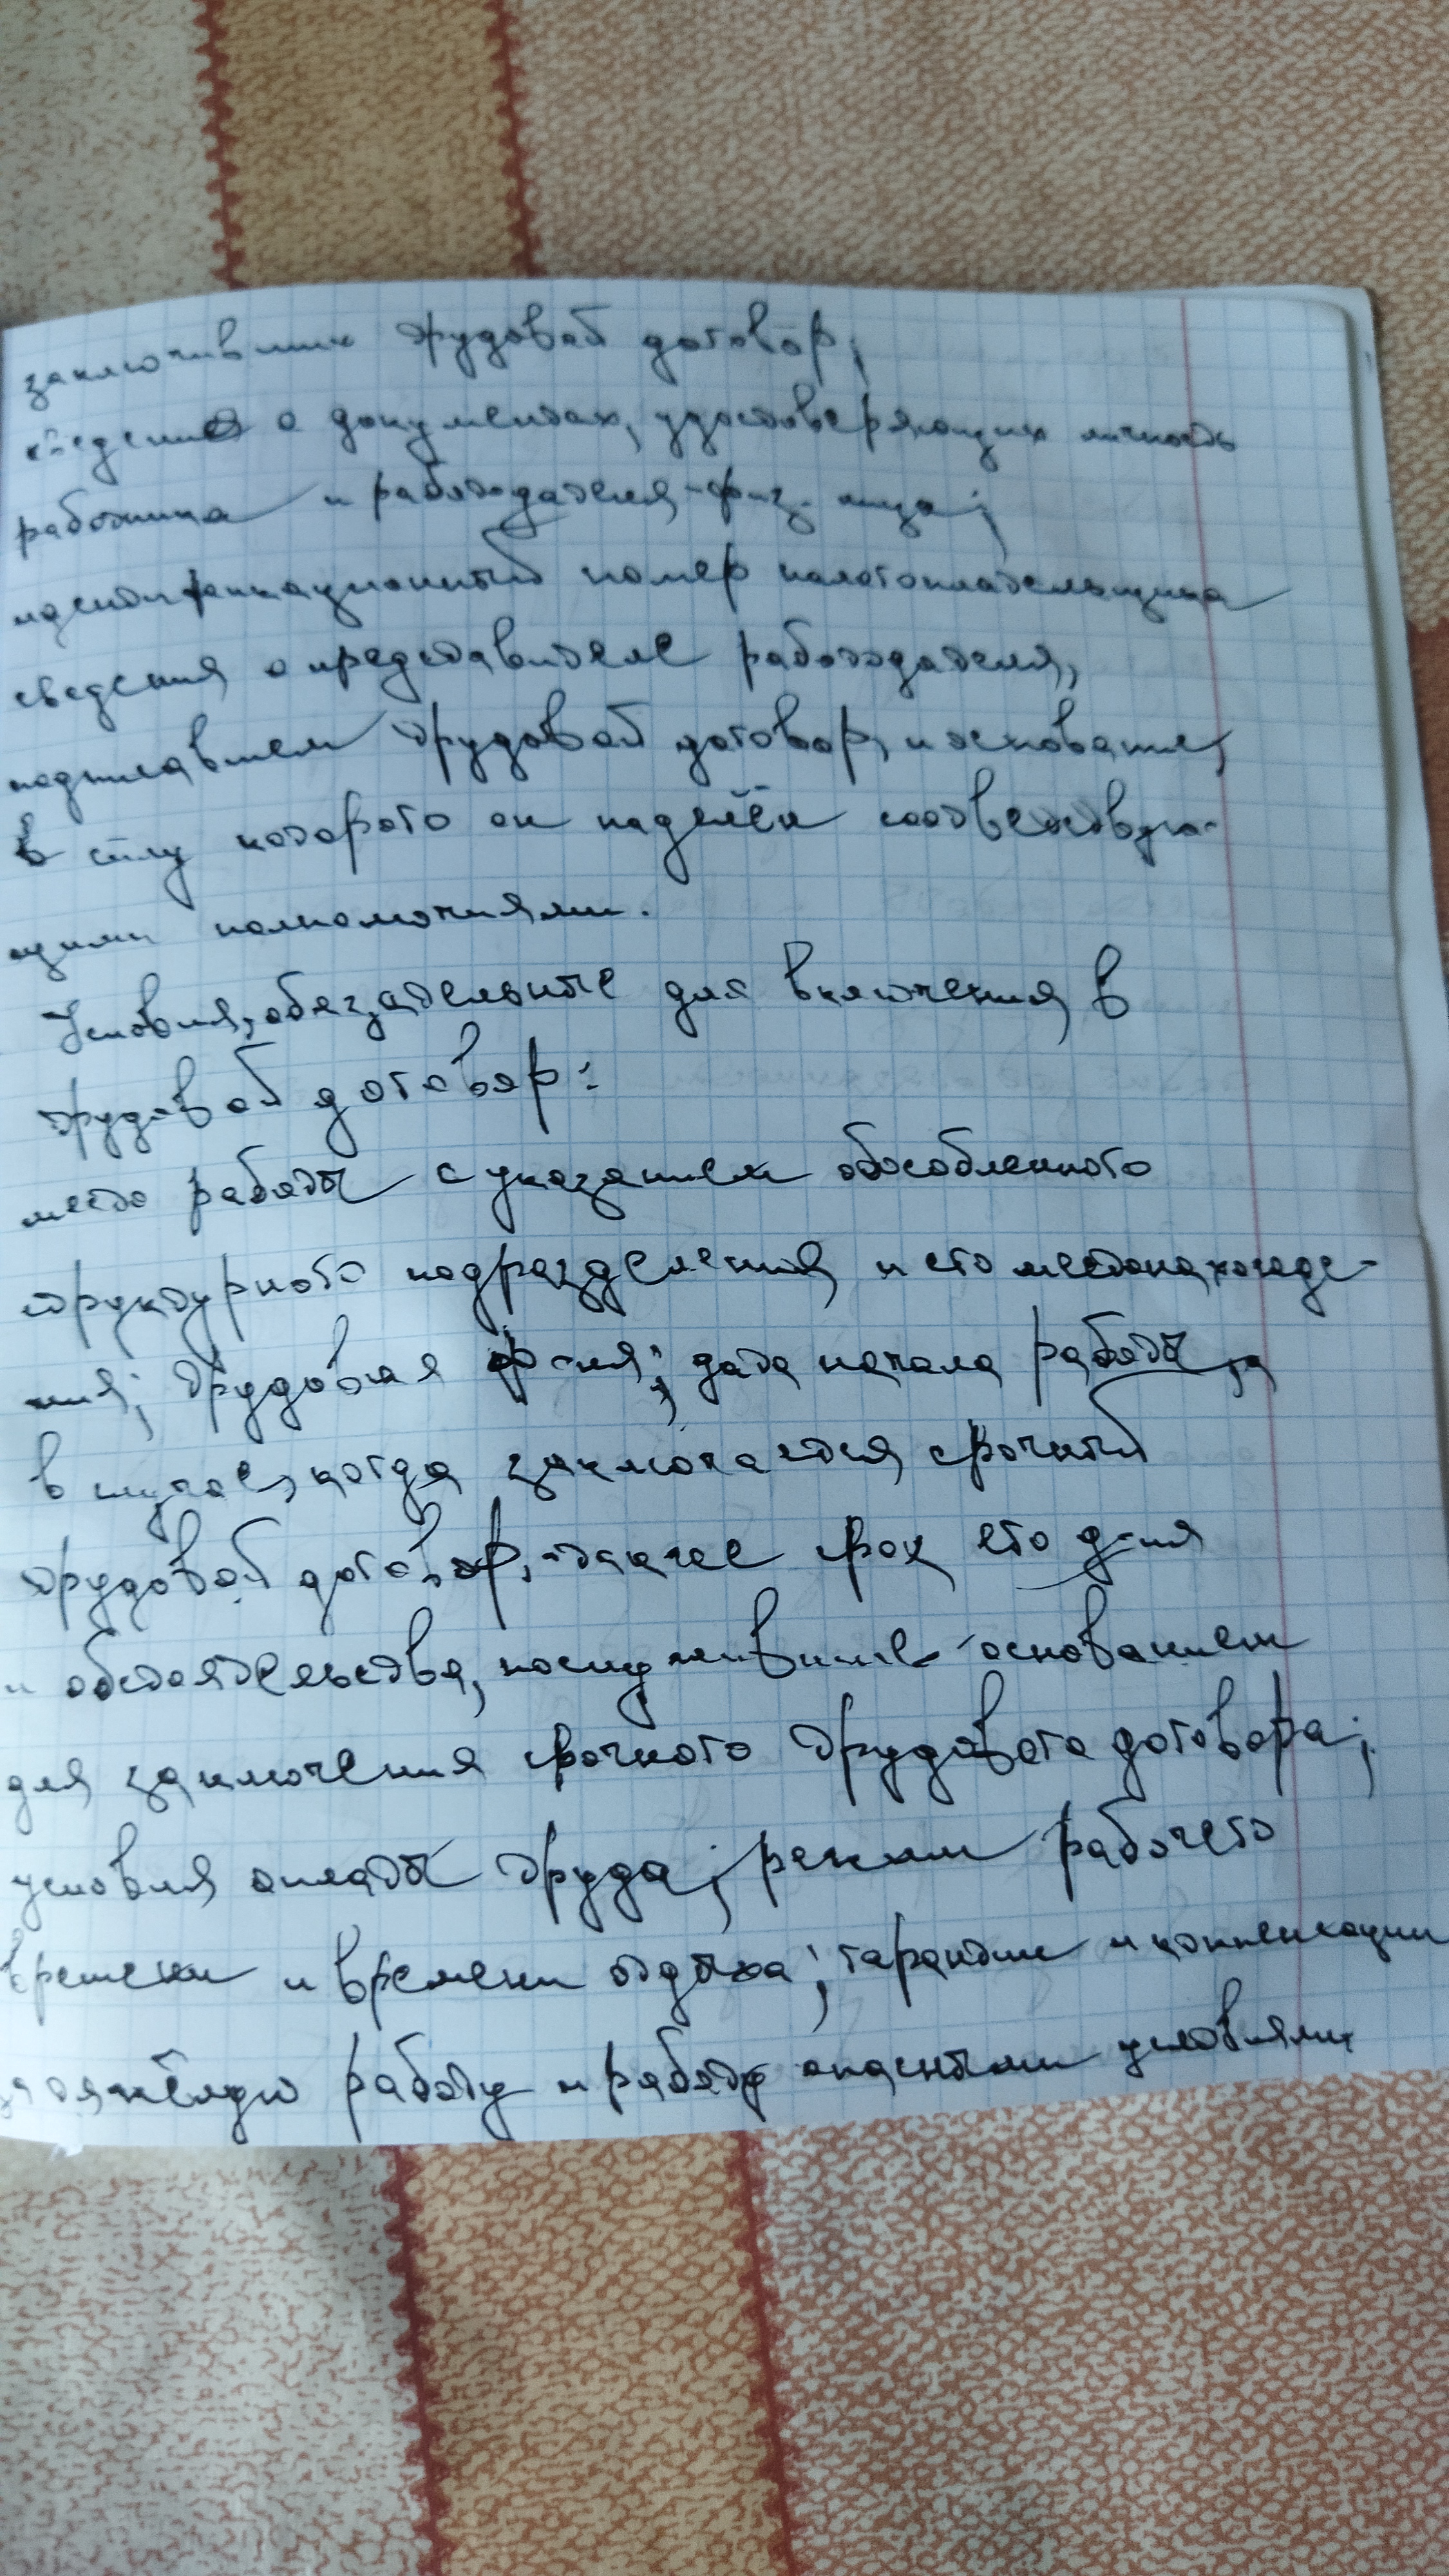 заключивших трудовой договор;
сведения о документах, удостоверяющих личность
работника и работодателя-физ. лица;
идентификационный номер налогоплательщика
сведения о представителе работодателя,
подписавшем трудовой договор, и основание,
в силу которого он наделён соответствую-
щими полномочиями.
Условия, обязательные для включения в
трудовой договор:
место работы с указанием обособленного
структурного подразделения и его местонахожде-
ния; трудовая ф-ия; дата начала работы, а
в случае, когда заключается срочный
трудовой договор, -также срок его д-ия
и обстоятельства, послужившие основанием
для заключения срочного трудового договора;
условия оплаты труда; режим рабочего
времени и времени отдыха; гарантии и компенсации
за тяжёлую работу и работу опасными условиями